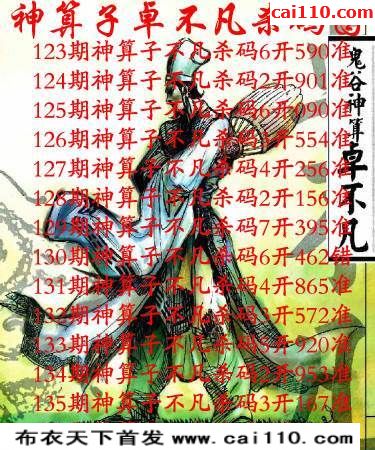 cai110.com
神算子卓不凡杀码图
123期神算子不凡杀码6开590准
124期神算子不凡杀码2开901准
125期神算子不凡杀码6开090准
126期神算子不凡杀码1开554准
127期神算子不凡杀码4开256准
128期神算子不凡杀码2开156准
129期神算子不凡杀码7开395准
130期神算子不凡杀码6开462错
131期神算子不凡杀码4开865准
132期神算子不凡杀码3开572准
133期神算子不凡杀码5开920准
134期神算子不凡杀码2开953准
135期神算子不凡杀码3开167准
鬼谷神算
卓不凡
布衣天下首发 www.cai110.com